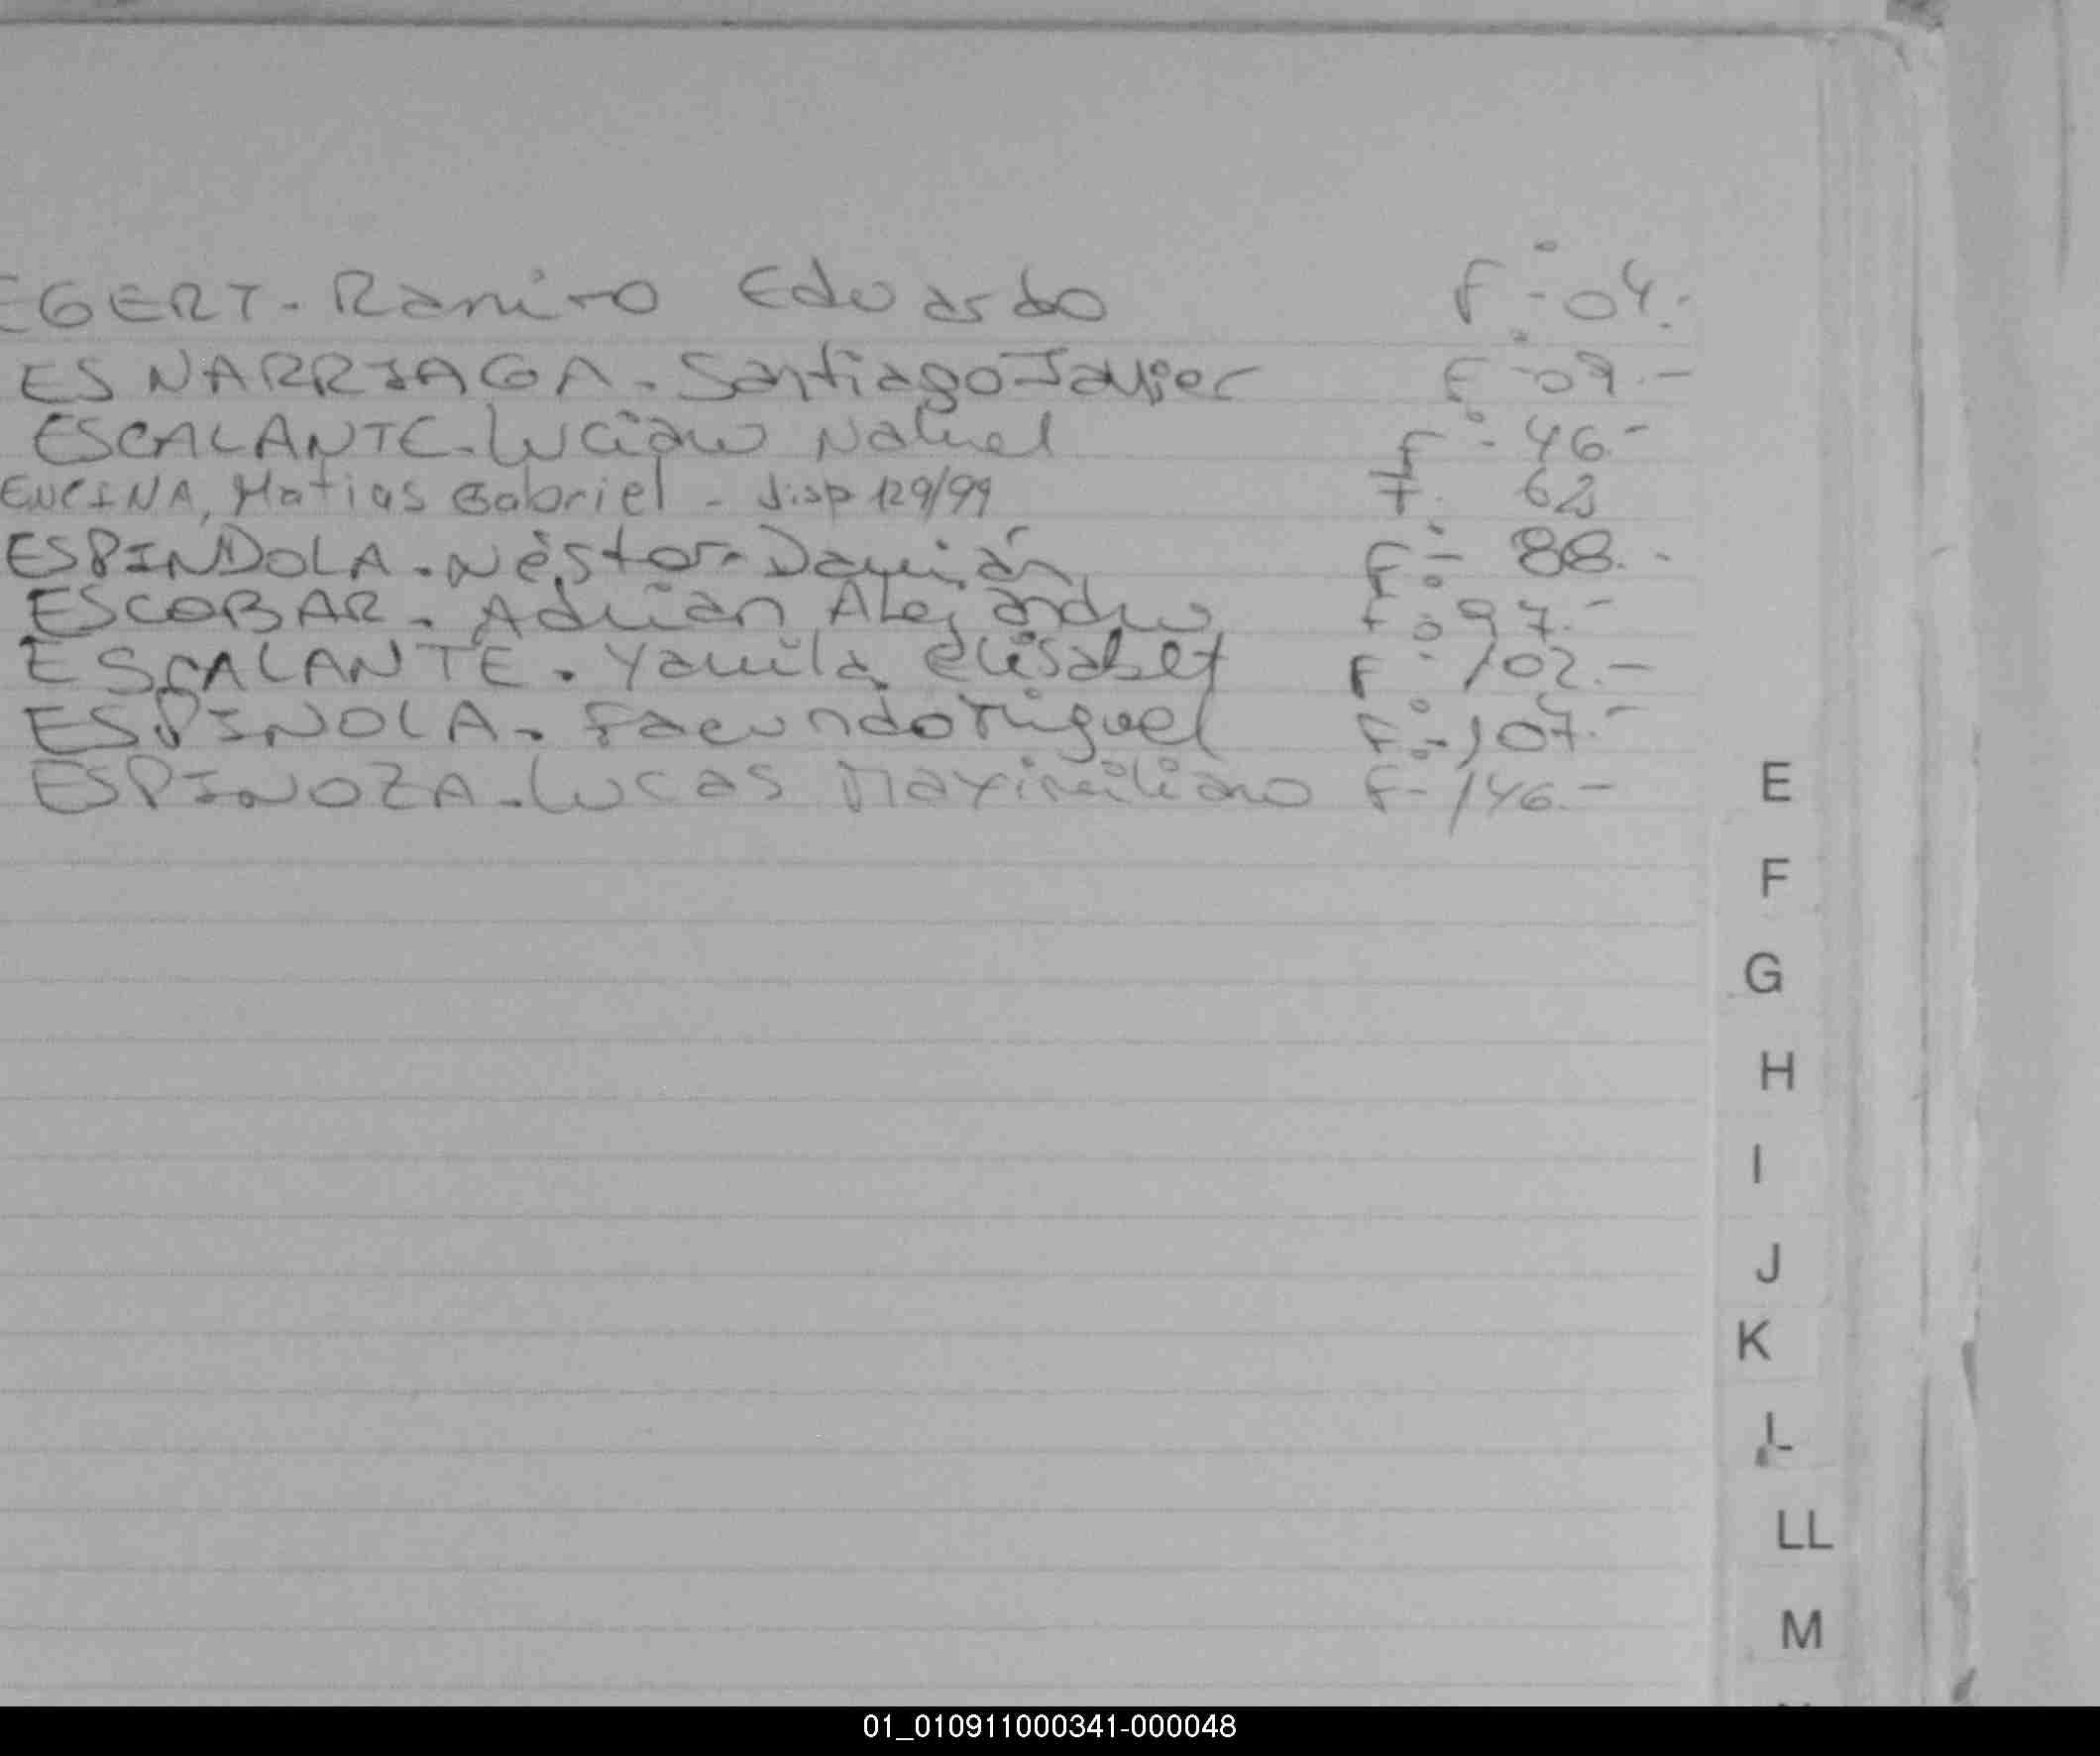 EGERT - Ramiro Eduardo F° - 04.-
ESNARRIAGA - Santiago Javier F° - 09.-
ESCALANTE - Luciano Nahuel F° - 46.-
ENCINA, Matias Gabriel - disp 129/99 F. 62
ESPINDOLA - Néstor Damián F° - 88.-
ESCOBAR - Adrian Alejandro F° 97.-
ESCALANTE - Yamila Elisabet F° 102.-
ESPINOLA - Facundo Miguel F° - 107.-
ESPINOZA - Lucas Maximiliano F° - 146.-
E
F
G
H
I
J
K
L
LL
M
01_010911000341-000048